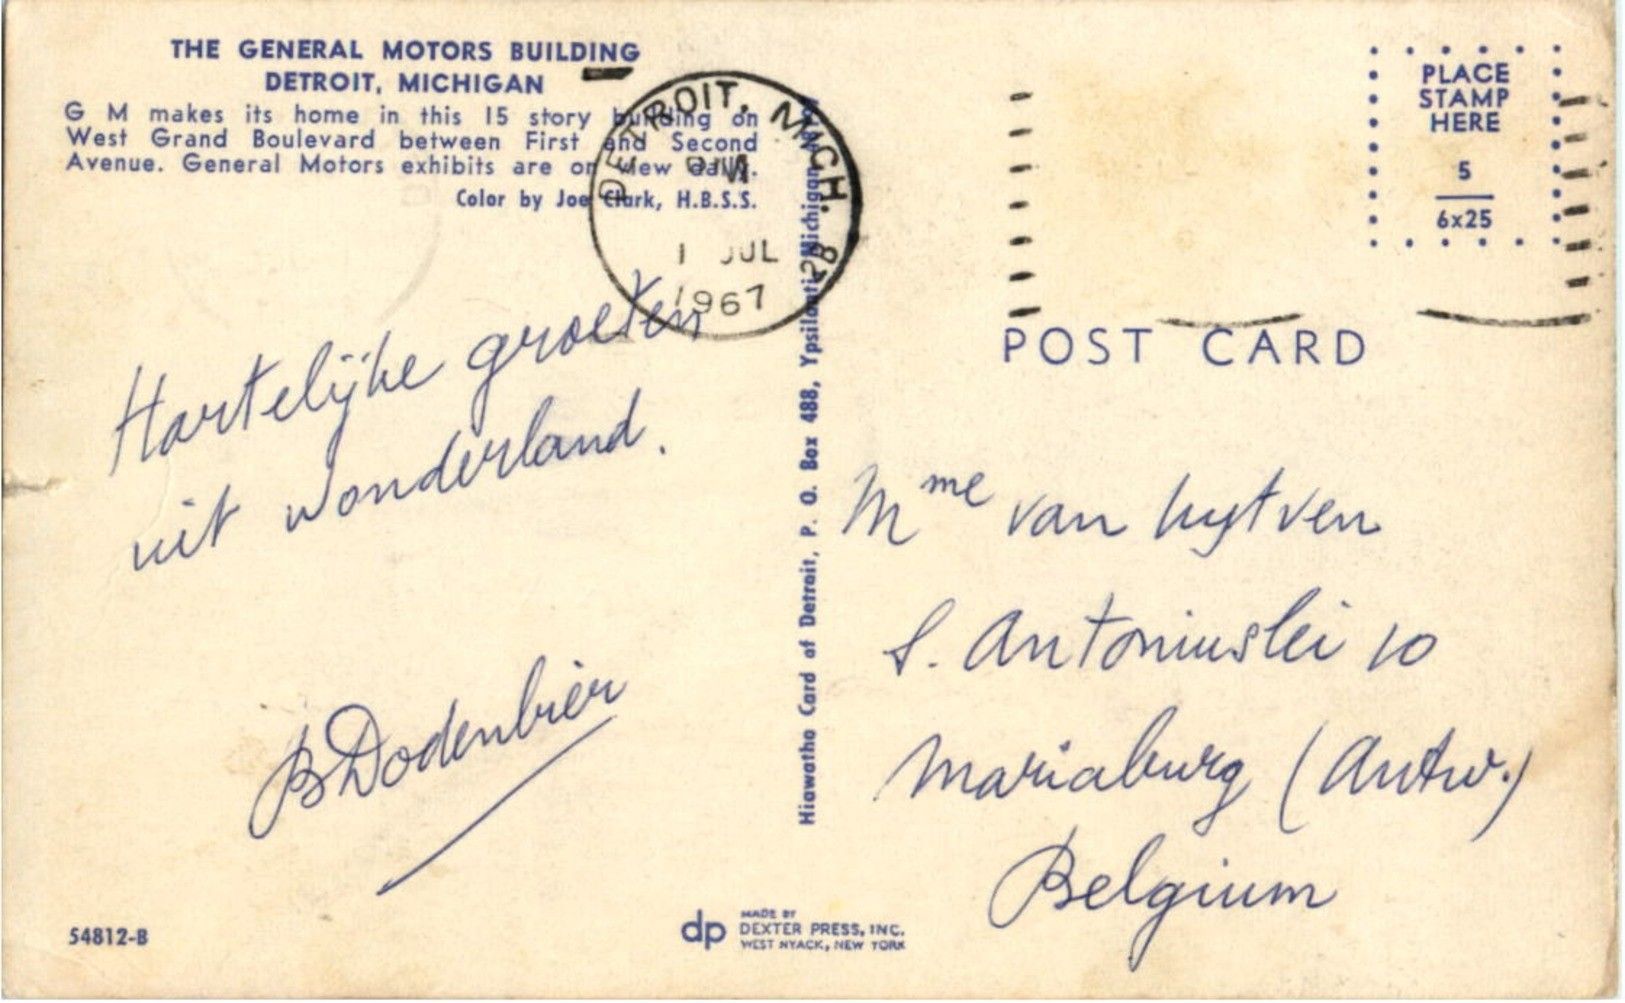 THE GENERAL MOTORS BUILDING
DETROIT, MICHIGAN
G M makes its home in this 15 story building on
West Grand Boulevard between First and Second
Avenue. General Motors exhibits are on view daily.
Color by Joe Clark, H.B.S.S.
DETROIT, MICH. 28
PM
1 JUL
1967
Hartelijke groeten
uit wonderland.
B Dodenbier
54812-B
Hiawatha Card of Detroit, P. O. Box 488, Ypsilanti, Michigan
dp
MADE BY
DEXTER PRESS, INC.
WEST NYACK, NEW YORK
PLACE
STAMP
HERE
5
6x25
POST CARD
Mme van
S. Antoniuslei 10
Mariaburg (Antw.)
Belgium